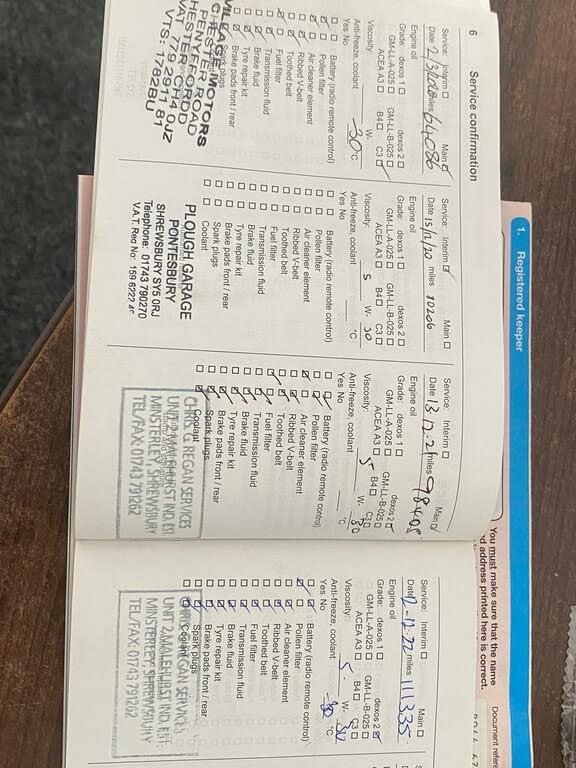 6 Service confirmation
Service: Interim Main
Date miles 64086
Engine oil
Grade: dexos 1 dexos 2
GM-LL-A-025 GM-LL-B-025
ACEA A3 B4 C3
Viscosity: W-
Anti-freeze, coolant -30°C
Yes No
Battery (radio remote control)
Pollen filter
Air cleaner element
Ribbed V-belt
Toothed belt
Fuel filter
Transmission fluid
Brake fluid
Tyre repair kit
Brake pads front / rear
Spark plugs
VILLAGE MOTORS
CHESTER ROAD
Service: Interim Main
Date 15/12/20 miles 80206
Engine oil
Grade: dexos 1 dexos 2
GM-LL-A-025 GM-LL-B-025
ACEA A3 B4 C3
Viscosity: 5 W- 30
Anti-freeze, coolant °C
Yes No
Battery (radio remote control)
Pollen filter
Air cleaner element
Ribbed V-belt
Toothed belt
Fuel filter
Transmission fluid
Brake fluid
Tyre repair kit
Brake pads front / rear
Spark plugs
Coolant
PLOUGH GARAGE
PONTESBURY
SHREWSBURY SY5 0RJ
Telephone: 01743 790270
V.A.T. Reg No: 159 6222
Service: Interim Main
Date 13.12.21 miles 98405
Engine oil
Grade: dexos 1 dexos 2
GM-LL-A-025 GM-LL-B-025
ACEA A3 B4 C3
Viscosity: 5 W- 30
Anti-freeze, coolant °C
Yes No
Battery (radio remote control)
Pollen filter
Air cleaner element
Ribbed V-belt
Toothed belt
Fuel filter
Transmission fluid
Brake fluid
Tyre repair kit
Brake pads front / rear
Spark plugs
Coolant
CHRIS O REGAN SERVICES
UNIT 2 MALEHURST IND. EST.
MINSTERLEY, SHREWSBURY
TEL/FAX: 01743 791262
Service: Interim Main
Date 12-12-22 miles 111335
Engine oil
Grade: dexos 1 dexos 2
GM-LL-A-025 GM-LL-B-025
ACEA A3 B4 C3
Viscosity: 5 W- 30
Anti-freeze, coolant -30 °C
Yes No
Battery (radio remote control)
Pollen filter
Air cleaner element
Ribbed V-belt
Toothed belt
Fuel filter
Transmission fluid
Brake fluid
Tyre repair kit
Brake pads front / rear
Spark plugs
Coolant
CHRIS O REGAN SERVICES
UNIT 2 MALEHURST IND. EST.
MINSTERLEY, SHREWSBURY
TEL/FAX: 01743 791262
1. Registered keeper
You must make sure that the name
address printed here is correct.
Document